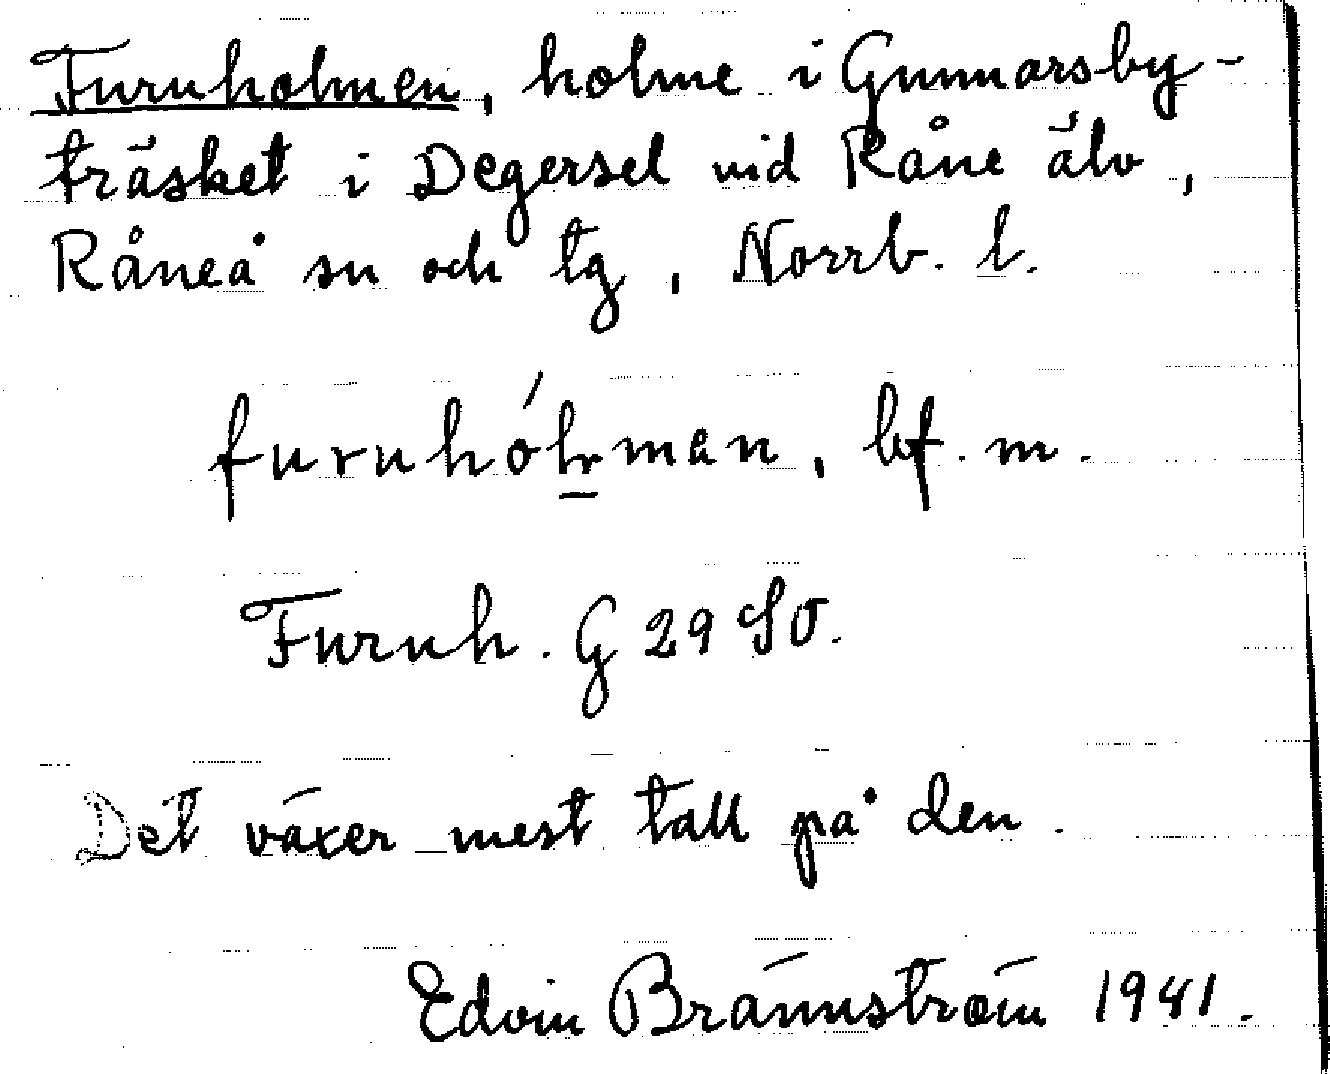 Furuholmen, holme i Gunnarsby-
träsket i Degersel vid Råne älv,
Råneå sn och tg, Norrb. l.
furuhólman, bf. m.
Furuh. G 29 SO.
Det växer mest tall på den.
Edvin Brännström 1941.